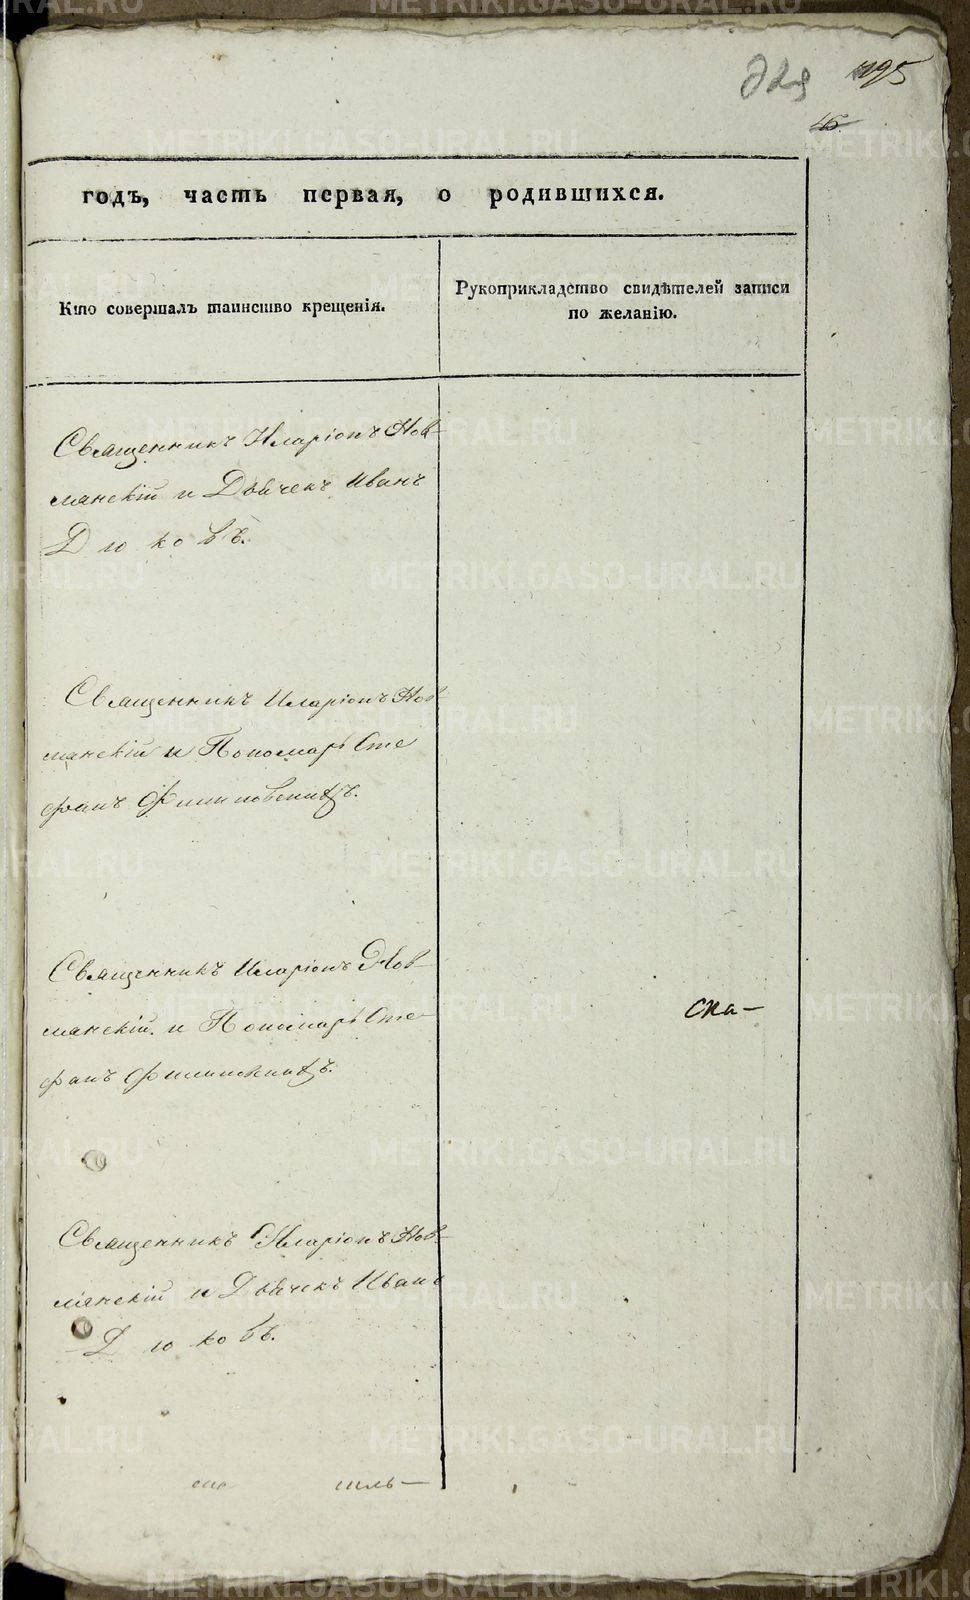 495
46.
годъ, часть первая, о родившихся.
Кто совершалъ таинство крещенія.
Рукоприкладство свидѣтелей записи
по желанію.
Священникъ Иларіонъ Нов-
лянскій и Дьячекъ Иванъ
Дюковъ.
Священникъ Иларіонъ Нов-
лянскій и Пономарь Сте
фанъ
Священникъ Иларіонъ Нов-
лянскій и Пономарь Сте-
фанъ
ска-
Священникъ Иларіонъ Нов-
лянскій и Дьячекъ Иванъ
Дюковъ.
тель-
METRIKI.GASO-URAL.RU